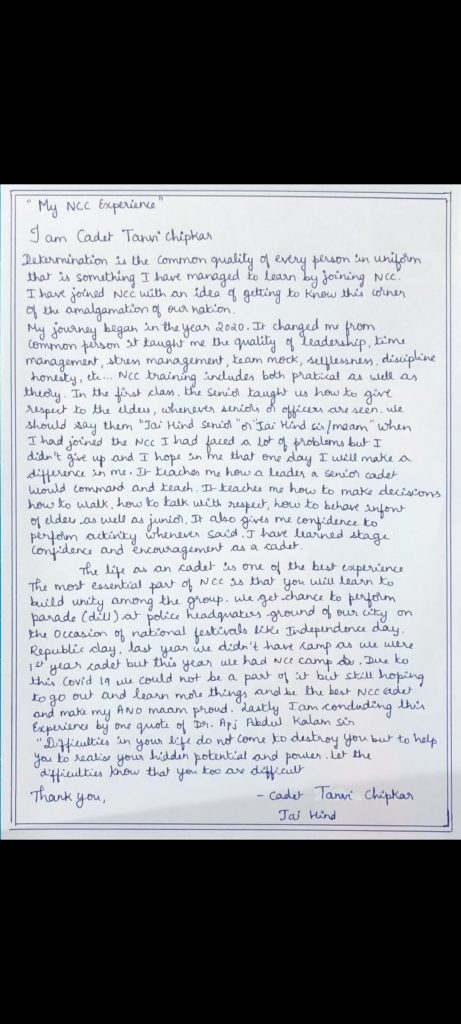 "My NCC Experience"
I am Cadet Tanvi Chipkar
Determination is the common quality of every person in uniform
that is something I have managed to learn by joining NCC.
I have joined NCC with an idea of getting to know this corner
of the amalgamation of our nation.
My journey began in the year 2020. It changed me from
common person it taught me the quality of leadership, time
management, stress management, team mock, selflessness, discipline
honesty, etc... NCC training includes both pratical as well as
theory. In the first class, the senior taught us how to give
respect to the elders, whenever seniors or officers are seen. we
should say them "Jai Hind Senior" or "Jai Hind sir/meam" when
I had joined the NCC I had faced a lot of problems but I
didn't give up and I hope in me that one day I will make a
difference in me. It teaches me how a leader a senior cadet
would command and teach. It teaches me how to make decisions
how to walk, how to talk with respect, how to behave infont
of elder as well as junior. It also gives me confidence to
perform activity whenever said. I have learned stage
confidence and encouragement as a cadet.
The life as an cadet is one of the best experience
The most essential part of NCC is that you will learn to
build unity among the group. we get chance to perform
parade (dill) at police headquaters ground of our city on
the occasion of national festivals like Independence day.
Republic day, last year we didn't have camp as we were
1st year cadet but this year we had NCC camp. Due to
this Covid 19 we could not be a part of it but still hoping
to go out and learn more things and be the best NCC cadet
and make my ANO maam proud. Lastly I am concluding this
Experience by one quote of Dr. Apj Abdul Kalam sir
"Difficulties in your life do not come to destroy you but to help
you to realise your hidden potential and power. let the
difficulties know that you too are difficult
Thank you,
- Cadet Tanvi Chipkar
Jai Hind